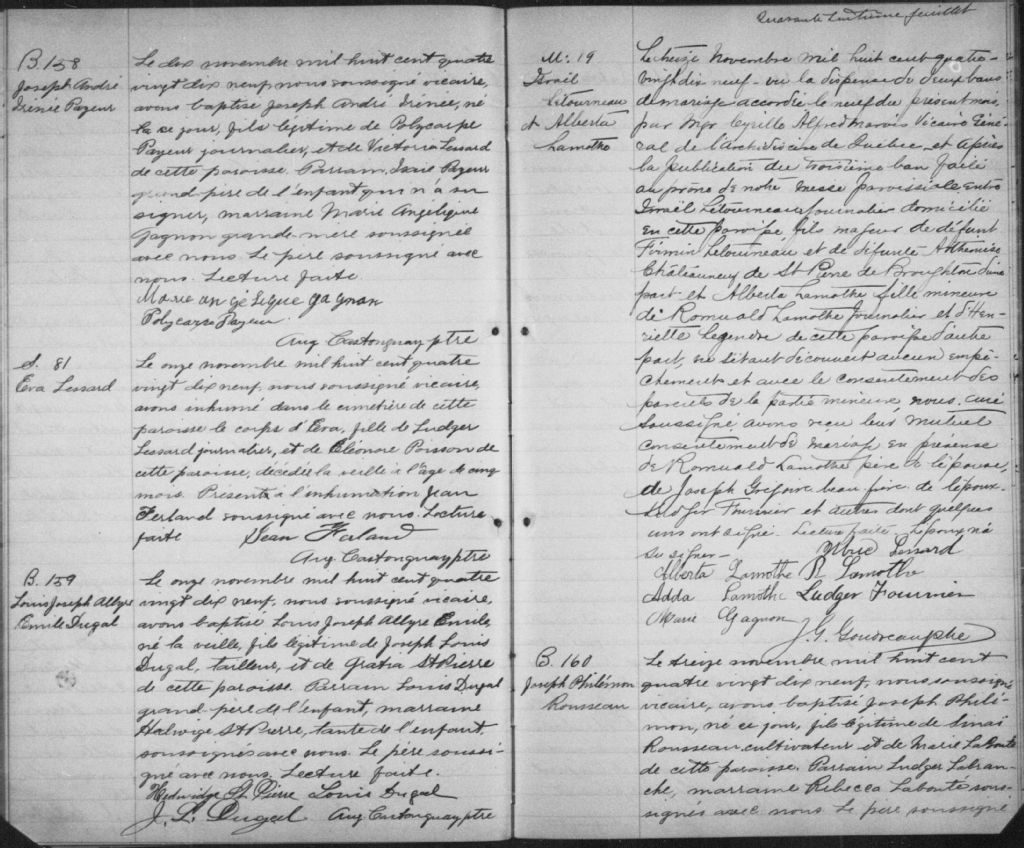 B. 158
Joseph André
Irénée Payeur
Le dix novembre mil huit cent quatre
vingt dix neuf, nous soussigné vicaire,
avons baptisé Joseph André Irénée, né
ce jour, fils légitime de Polycarpe
Payeur journalier, et de Victoria Lessard
de cette paroisse. Parrain, Isaie Payeur
grand père de l'enfant qui n'a su
signer, marraine Marie Angélique
Gagnon grande-mère soussignée
avec nous. Le père soussigné avec
nous. Lecture faite.
Marie angélique gagnon
Polycarpe Payeur
Aug Castonguay ptre
S. 81
Eva Lessard
Le onze novembre mil huit cent quatre
vingt dix neuf, nous soussigné vicaire,
avons inhumé dans le cimetière de cette
paroisse le corps d'Eva, fille de Ludger
Lessard journalier, et de Eléonore Poisson de
cette paroisse, décédée la veille à l'âge de cinq
mois. Présents à l'inhumation Jean
Ferland soussigné avec nous. Lecture
faite Jean Ferland
Aug Castonguay ptre
B. 159
Louis Joseph Allyre
Emile Dugal
Le onze novembre mil huit cent quatre
vingt dix neuf, nous soussigné vicaire,
avons baptisé Louis Joseph Allyre Emile,
né la veille, fils légitime de Joseph Louis
Dugal, tailleur, et de Gratia St Pierre
de cette paroisse. Parrain Louis Dugal
grand-père de l'enfant, marraine
Hedwige St Pierre, tante de l'enfant,
soussignés avec nous. Le père soussi-
gné avec nous. Lecture faite.
Hedwidge St Pierre Louis Dugal
J. L. Dugal Aug Castonguay ptre
Quarante huitième feuillet
M: 19
Israil
Létourneau
& Alberta
Lamothe
Le treize Novembre mil huit cent quatre-
vingt dix neuf - vu la dispense de deux bans
de mariage accordée le neuf du présent mois,
par Mgr Cyrille Alfred Marois Vicaire Géné-
ral de l'Archidiocèse de Québec, et après
la publication du troisième ban faite
au prône de notre messe paroissiale entre
Israël Létourneau journalier domicilié
en cette paroisse fils majeur de défunt
Firmin Létourneau et de défunte Arthémise
Châteauneuf de St Pierre de Broughton d'une
part et Alberta Lamothe fille mineure
de Romuald Lamothe journalier et d'Hen-
riette Legendre de cette paroisse d'autre
part, ne s'étant découvert aucun empê-
chement et avec le consentement des
parents de la partie mineure, nous, curé
soussigné avons reçu leur mutuel
consentement de mariage en présence
de Romuald Lamothe père de l'épouse,
de Joseph Grégoire beau frère de l'époux
Ludger Fournier et autres dont quelques
uns ont signé. Lecture faite. L'époux n'a
su signer - Lessard
Alberta Lamothe R Lamothe
Adda Lamothe Ludger Fournier
Marie Gagnon
J. G. Goudreau ptre
B. 160
Joseph Philémon
Rousseau
Le treize novembre mil huit cent
quatre vingt dix neuf, nous soussigné
vicaire, avons baptisé Joseph Philé-
mon, né ce jour, fils légitime de Sinaï
Rousseau cultivateur et de Marie Labonté
de cette paroisse. Parrain Ludger Labran-
che, marraine Rebecca Labonté sous-
signés avec nous. Le père soussigné